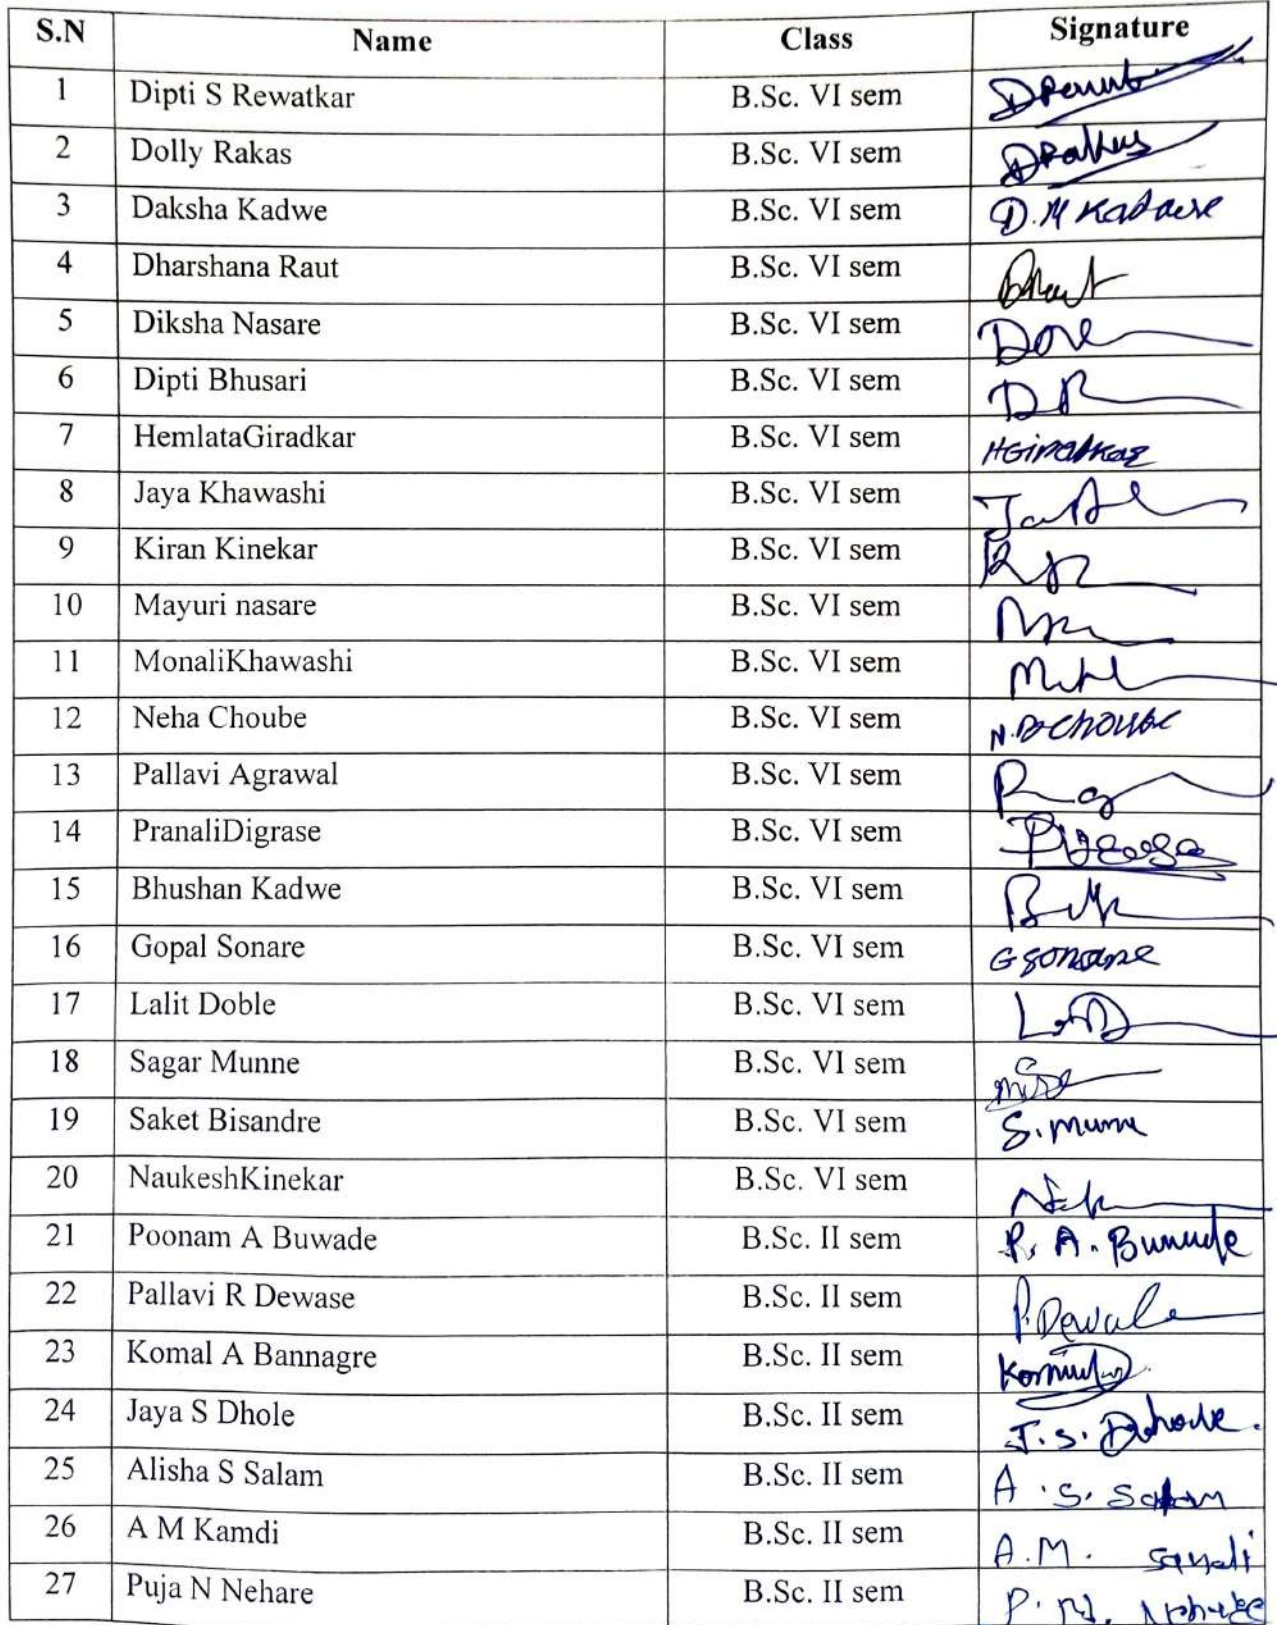 S.N Name Class Signature
1 Dipti S Rewatkar B.Sc. VI sem
2 Dolly Rakas B.Sc. VI sem DRakas
3 Daksha Kadwe B.Sc. VI sem D.M Kadawe
4 Dharshana Raut B.Sc. VI sem
5 Diksha Nasare B.Sc. VI sem
6 Dipti Bhusari B.Sc. VI sem
7 HemlataGiradkar B.Sc. VI sem HGiradkar
8 Jaya Khawashi B.Sc. VI sem
9 Kiran Kinekar B.Sc. VI sem
10 Mayuri nasare B.Sc. VI sem
11 MonaliKhawashi B.Sc. VI sem
12 Neha Choube B.Sc. VI sem N.B Choube
13 Pallavi Agrawal B.Sc. VI sem
14 PranaliDigrase B.Sc. VI sem
15 Bhushan Kadwe B.Sc. VI sem
16 Gopal Sonare B.Sc. VI sem G Sonare
17 Lalit Doble B.Sc. VI sem
18 Sagar Munne B.Sc. VI sem
19 Saket Bisandre B.Sc. VI sem S. Munne
20 NaukeshKinekar B.Sc. VI sem
21 Poonam A Buwade B.Sc. II sem P. A. Buwade
22 Pallavi R Dewase B.Sc. II sem
23 Komal A Bannagre B.Sc. II sem
24 Jaya S Dhole B.Sc. II sem J. S. Dhole.
25 Alisha S Salam B.Sc. II sem A. S. Salam
26 A M Kamdi B.Sc. II sem A.M.
27 Puja N Nehare B.Sc. II sem P. N. Nehare